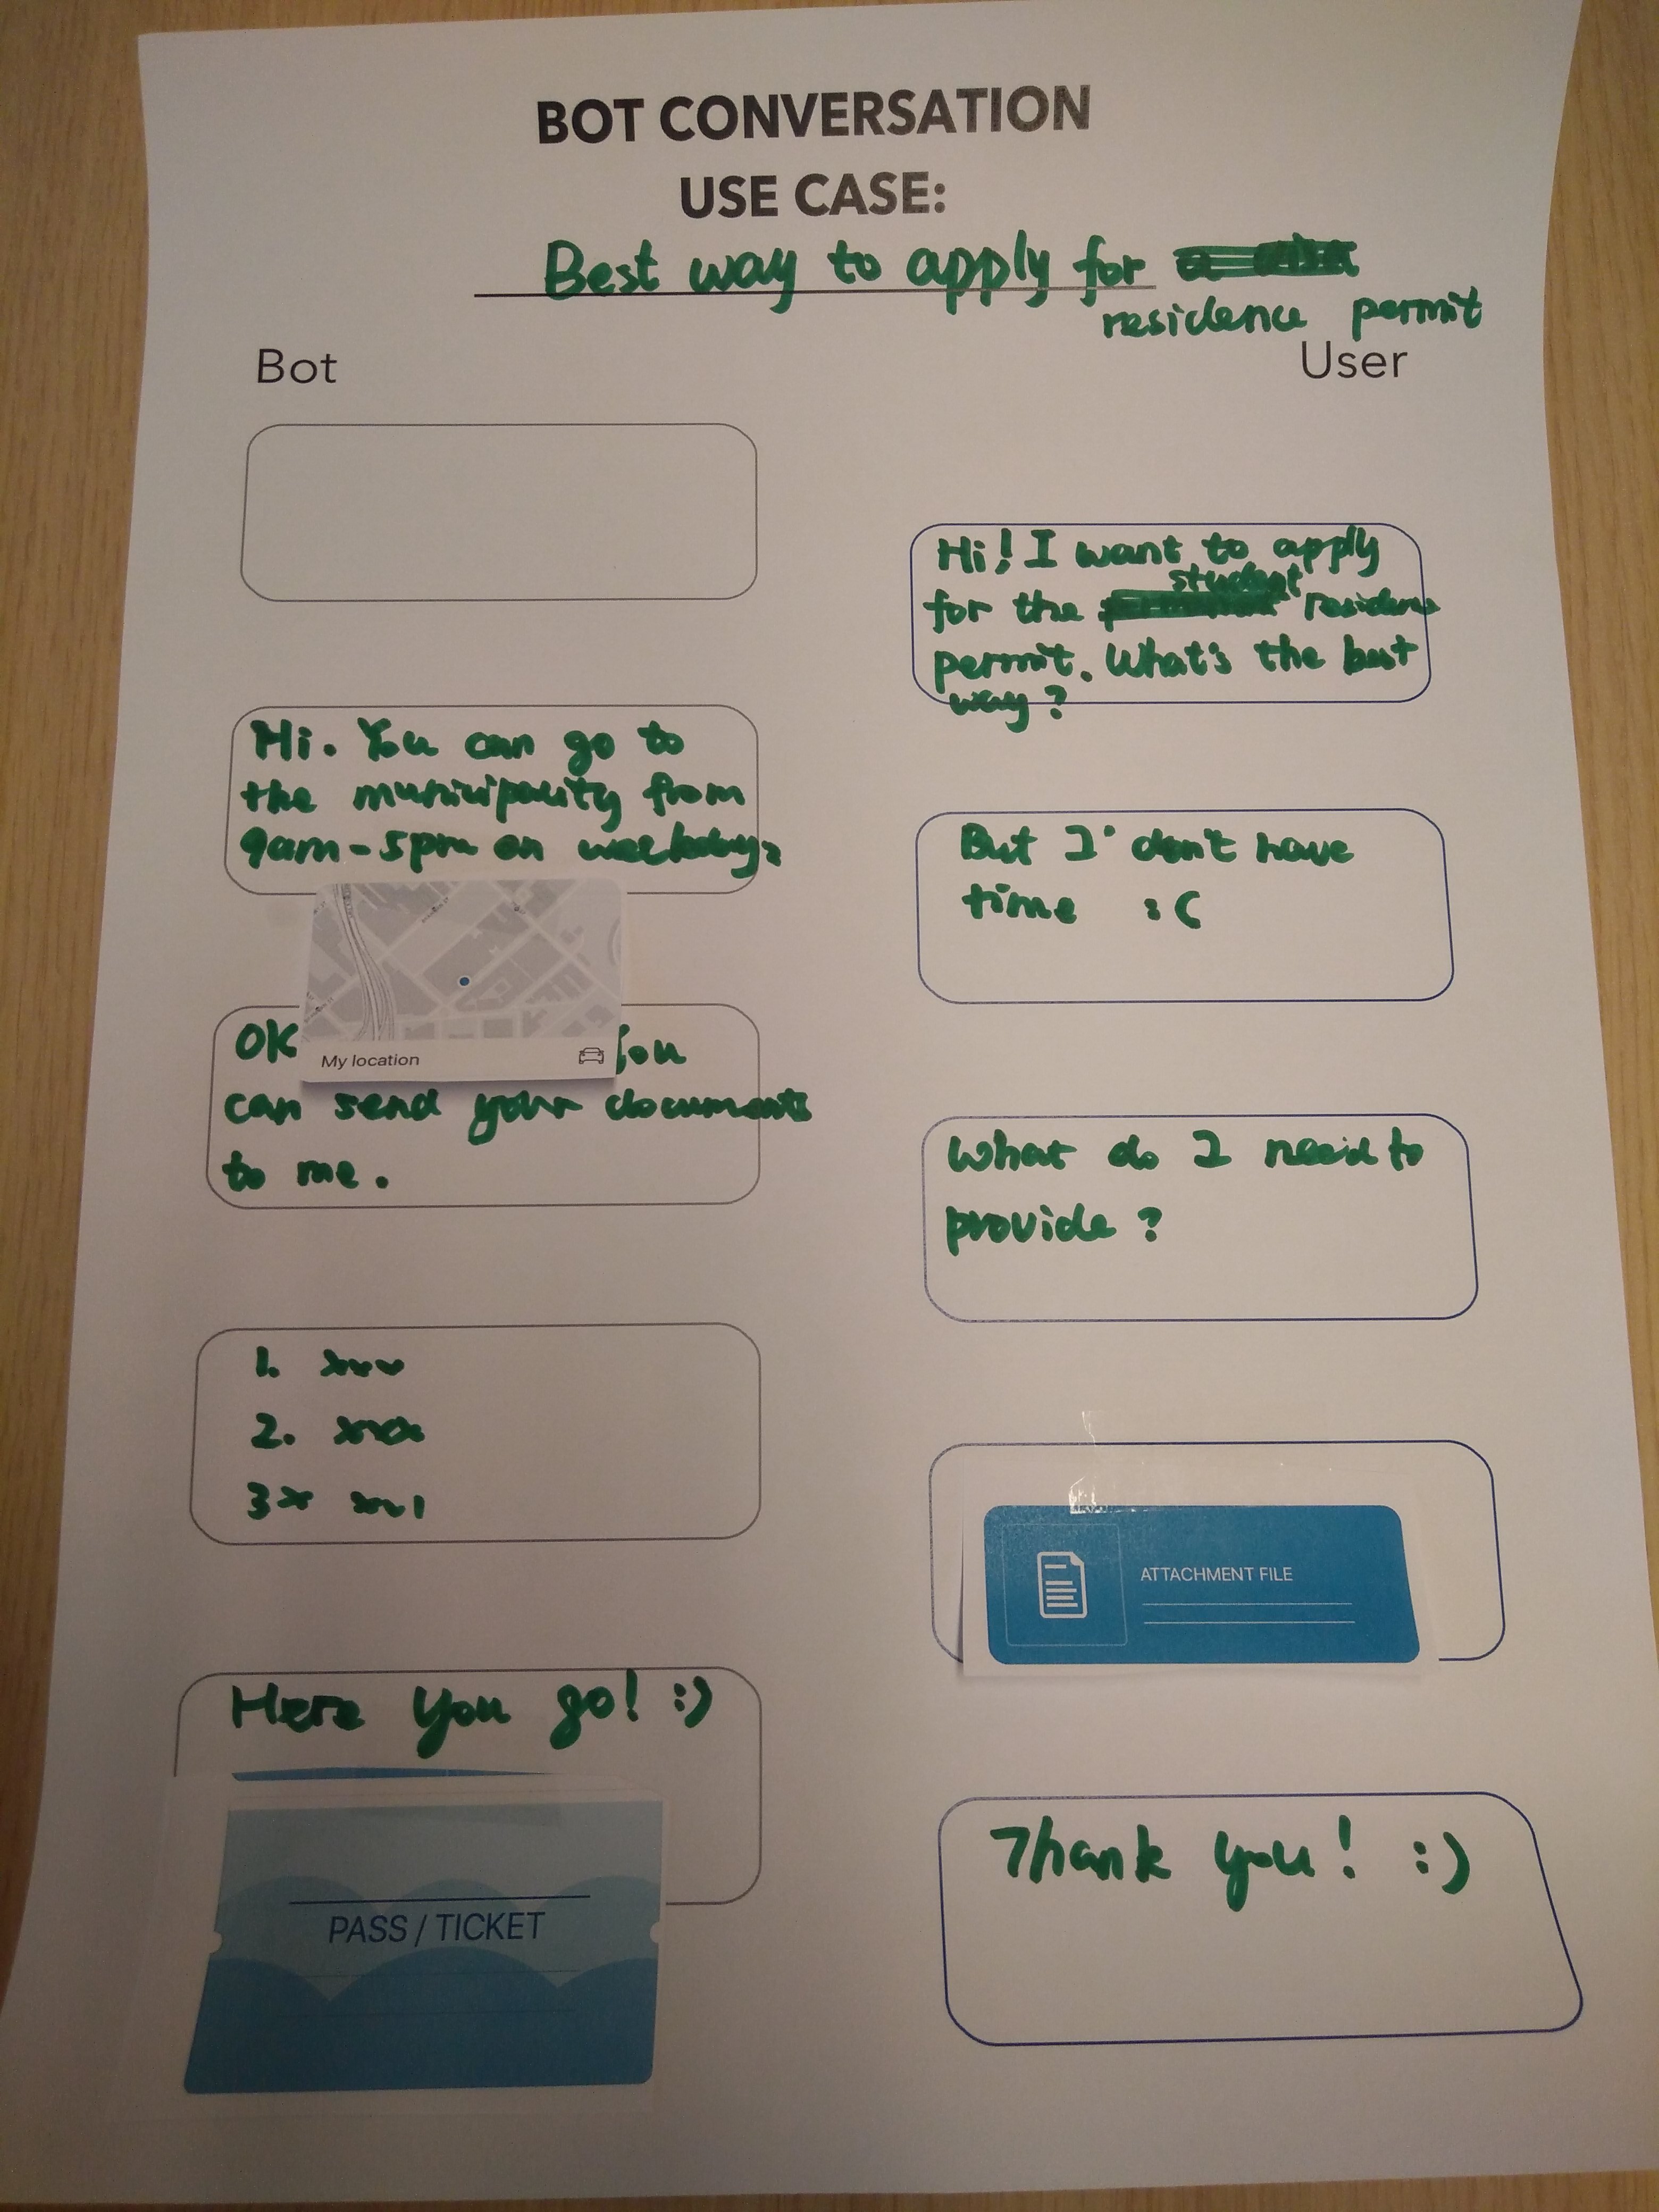 BOT CONVERSATION
USE CASE:
Best way to apply for
residence permit
Bot
User
Hi! I want to apply
student
for the residence
permit. What's the best
way?
Hi. You can go to
the municipality from
9am-5pm on weekdays
My location
But I don't have
time :(
OK You
can send your documents
to me.
What do I need to
provide?
1. xxx
2. xxx
3
ATTACHMENT FILE
Here you go! :)
PASS / TICKET
Thank you! :)